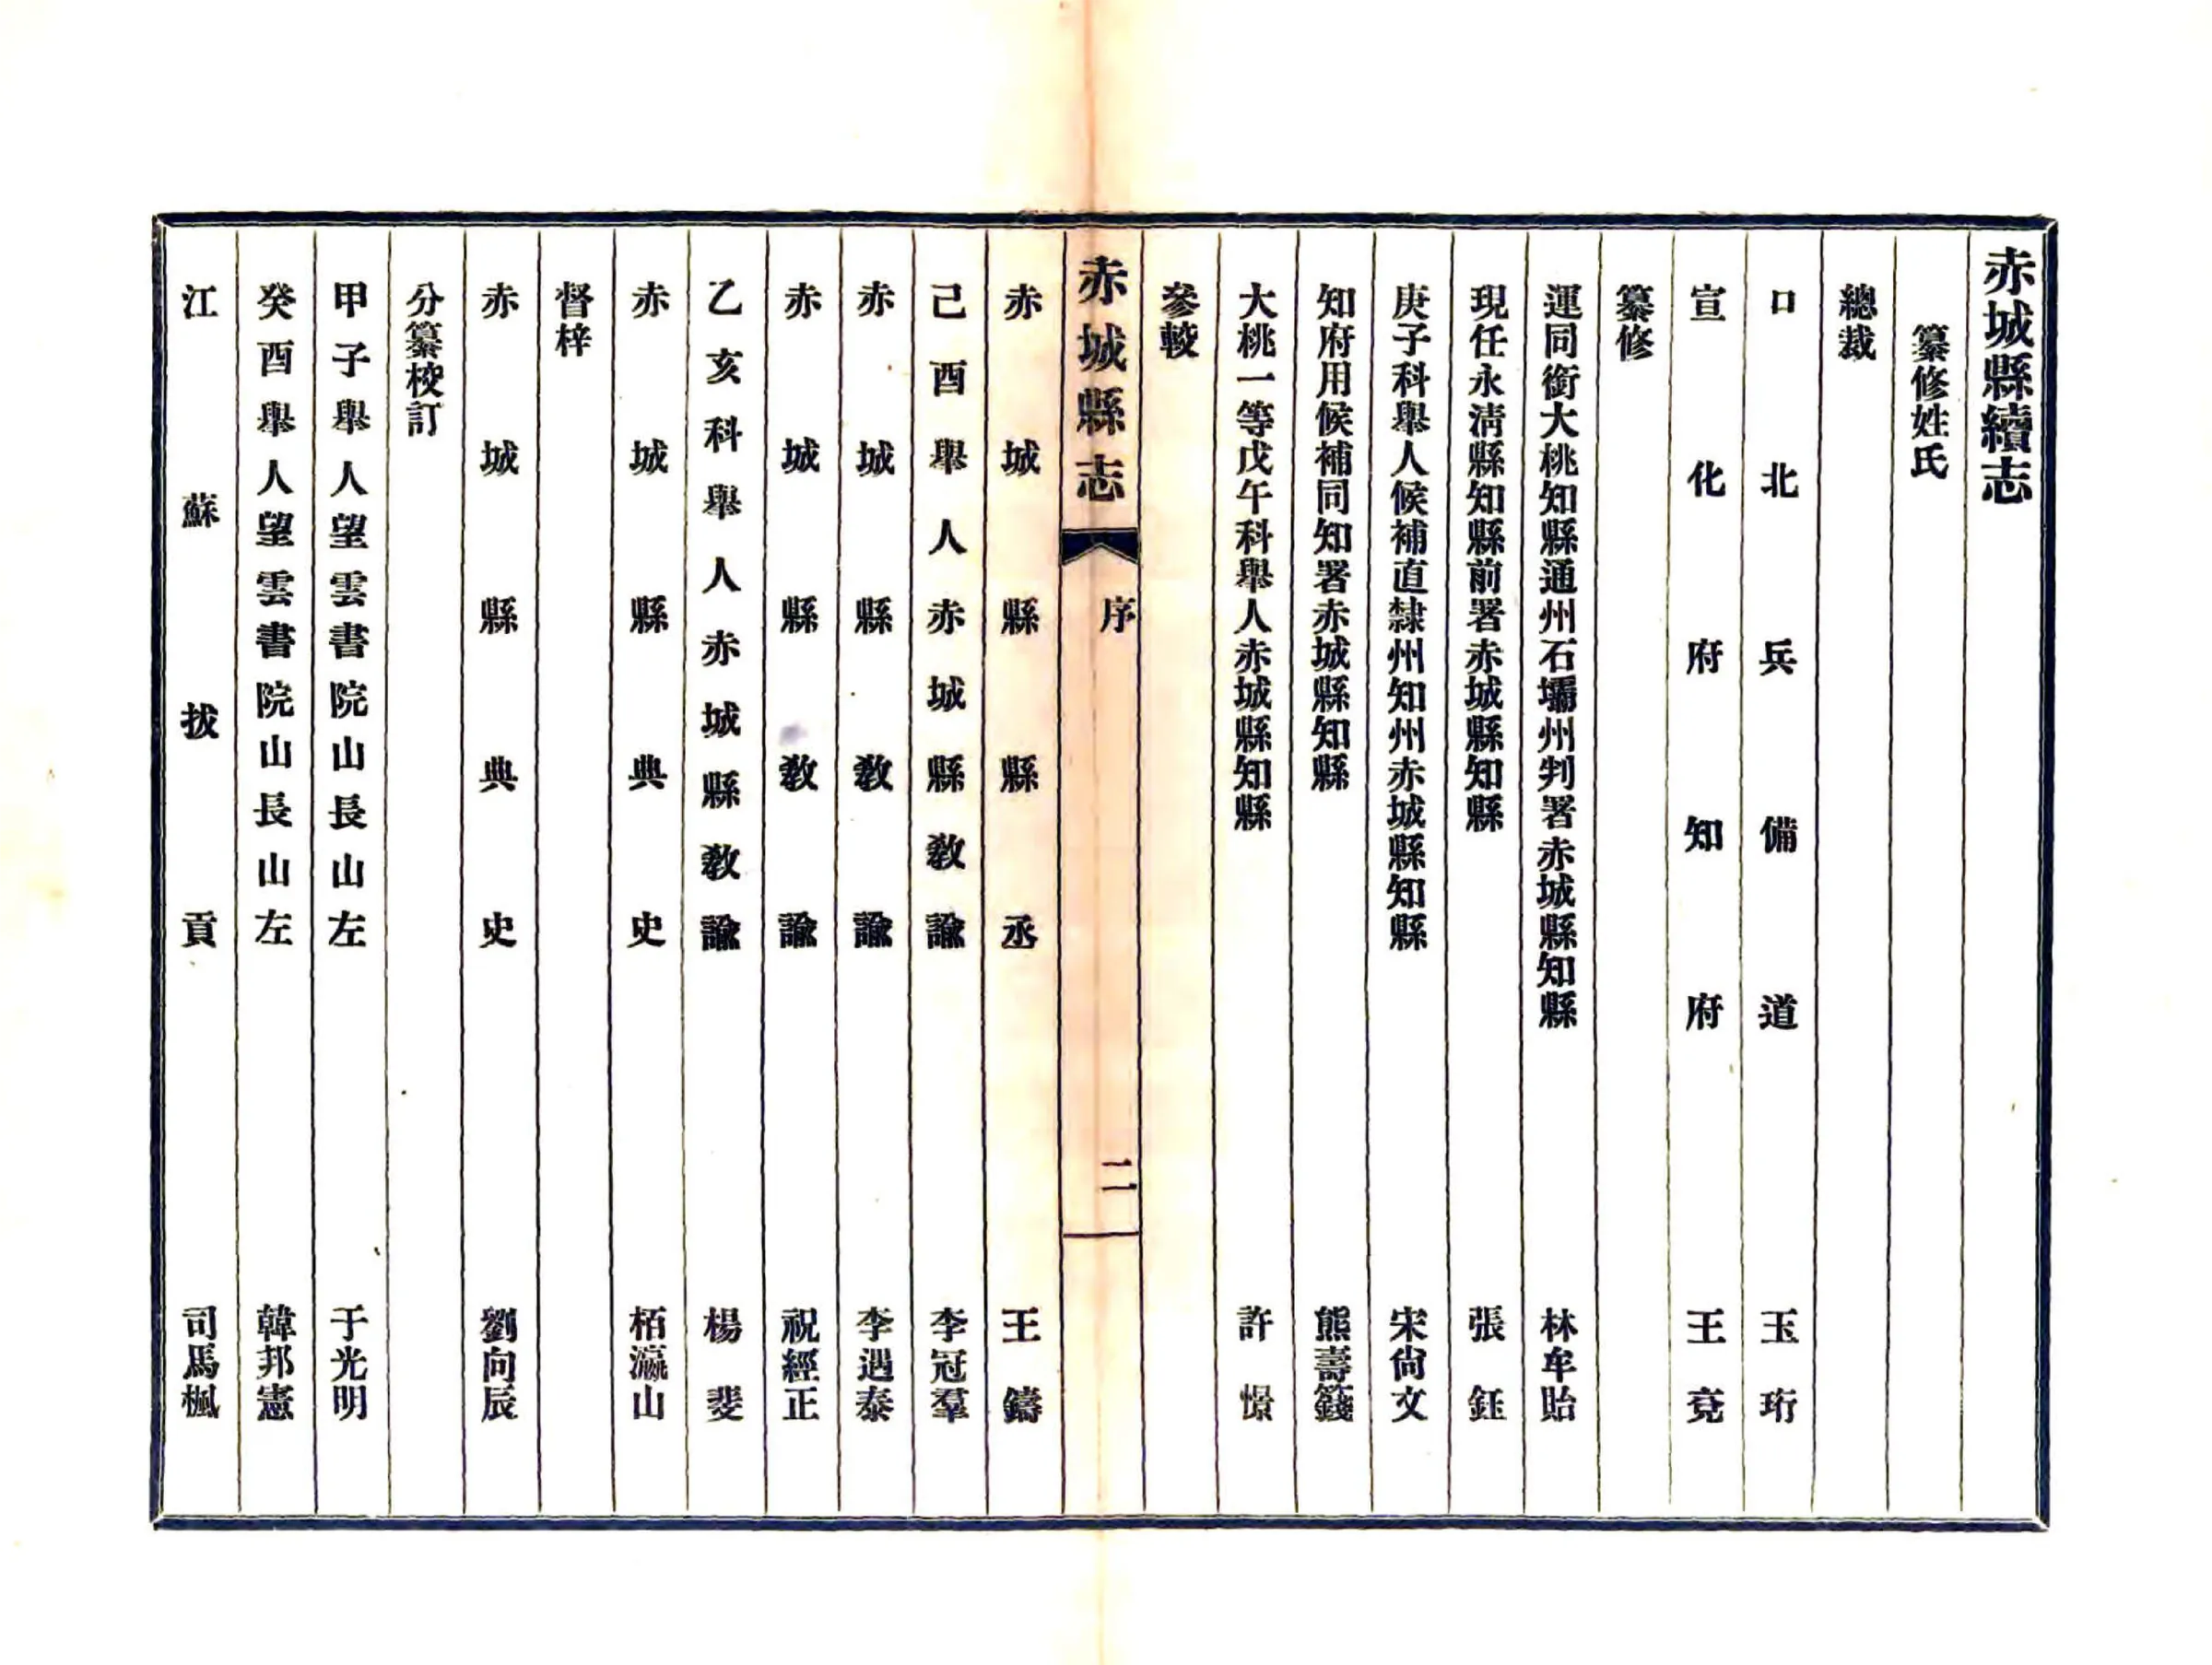 赤城縣續志
纂修姓氏
總裁
口北兵備道 玉珩
宣化府知府 王兗
纂修
運同銜大桃知縣通州石壩州判署赤城縣知縣 林牟貽
現任永淸縣知縣前署赤城縣知縣 張鈺
庚子科舉人候補直隸州知州赤城縣知縣 宋尙文
知府用候補同知署赤城縣知縣 熊壽籛
大桃一等戊午科舉人赤城縣知縣 許憬
參較
赤城縣志 序 二
赤城縣縣丞 王鑄
己酉舉人赤城縣敎諭 李冠羣
赤城縣敎諭 李遇泰
赤城縣敎諭 祝經正
乙亥科舉人赤城縣敎諭 楊斐
赤城縣典史 栢瀛山
督梓
赤城縣典史 劉向辰
分纂校訂
甲子舉人望雲書院山長山左 于光明
癸酉舉人望雲書院山長山左 韓邦憲
江蘇拔貢 司馬楓